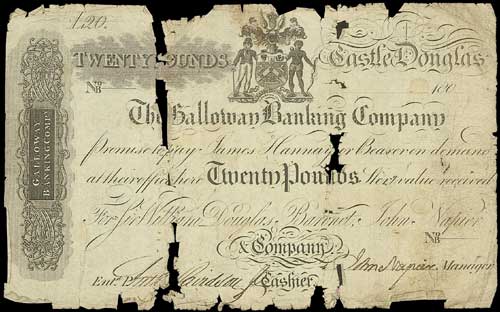 £20.
TWENTY POUNDS Castle Douglas
No 180
The Galloway Banking Company
promise to pay James Hannay or Bearer on demand
at their office here Twenty Pounds Ster value received
For Sir William Douglas, Baronet, John Napier
& Company No
Entd Davidson Cashier. John Napier Manager
GALLOWAY
BANKING COMPY